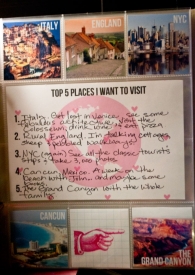 ITALY
ENGLAND
NYC
TOP 5 PLACES I WANT TO VISIT
1. Italy. Get lost in Venice. See some
fabulous architecture. Visit the
Colosseum, drink wine & eat pizza
2. Rural England. I'm talking cottages,
sheep,
3. NYC (again) See all the classic tourists
traps & take 3,000 photos
4. Cancun, Mexico. A week on the
beach with
5. The Grand Canyon with the whole
family
CANCUN
THE
GRAND CANYON